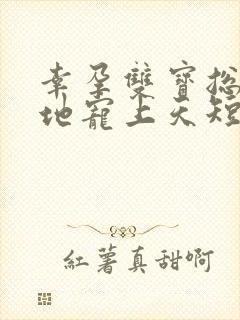 幸孕雙寶總
地寵上天短
紅薯真甜啊